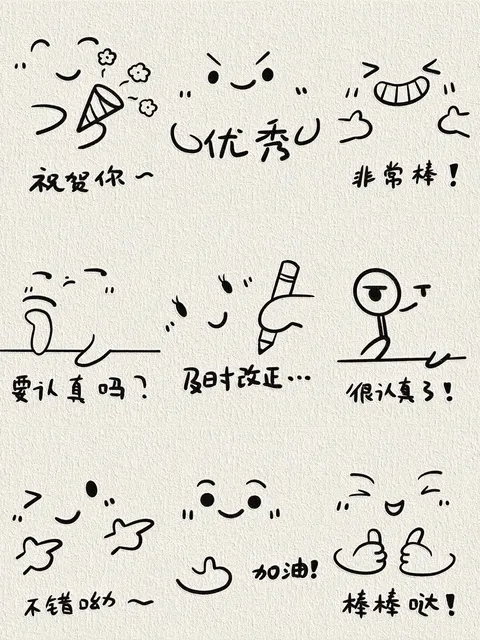 祝贺你~
优秀
非常棒!
要认真吗?
及时改正…
很认真了!
不错呦~
加油!
棒棒哒!